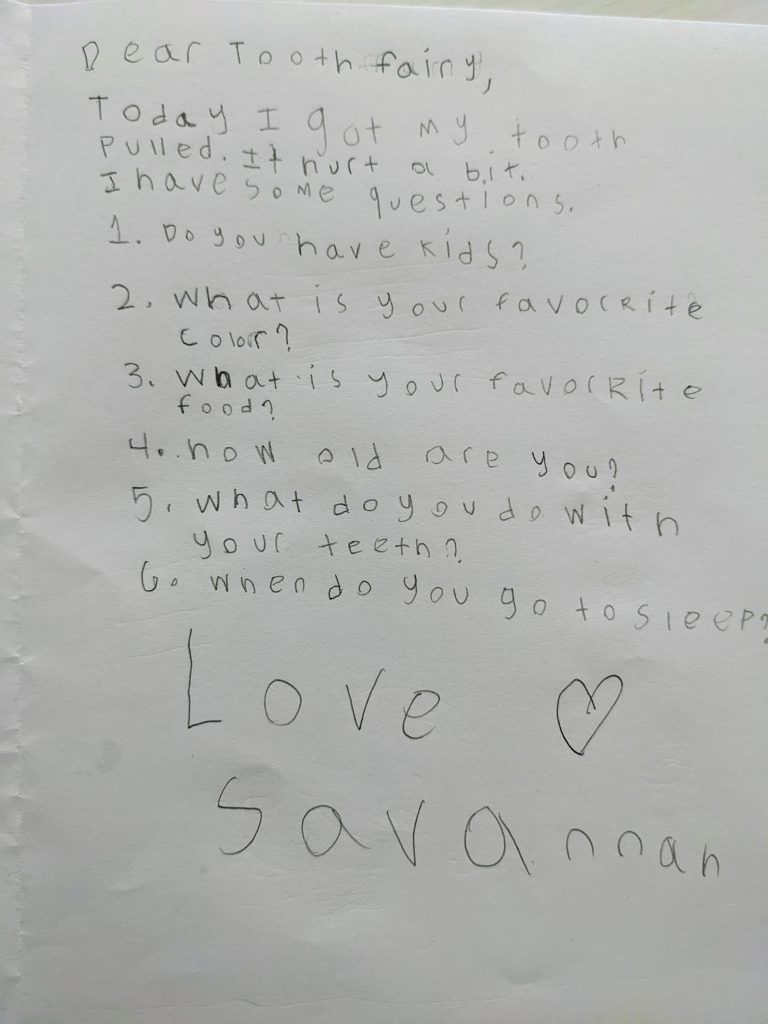 Dear Tooth fairy,
Today I got my tooth
pulled. It hurt a bit.
I have some questions.
1. Do you have kids?
2. What is your favorRite
color?
3. What is your favorRite
food?
4. how old are you?
5. what do you do with
your teeth?
6. when do you go to sleep?
Love ♡
Savannah